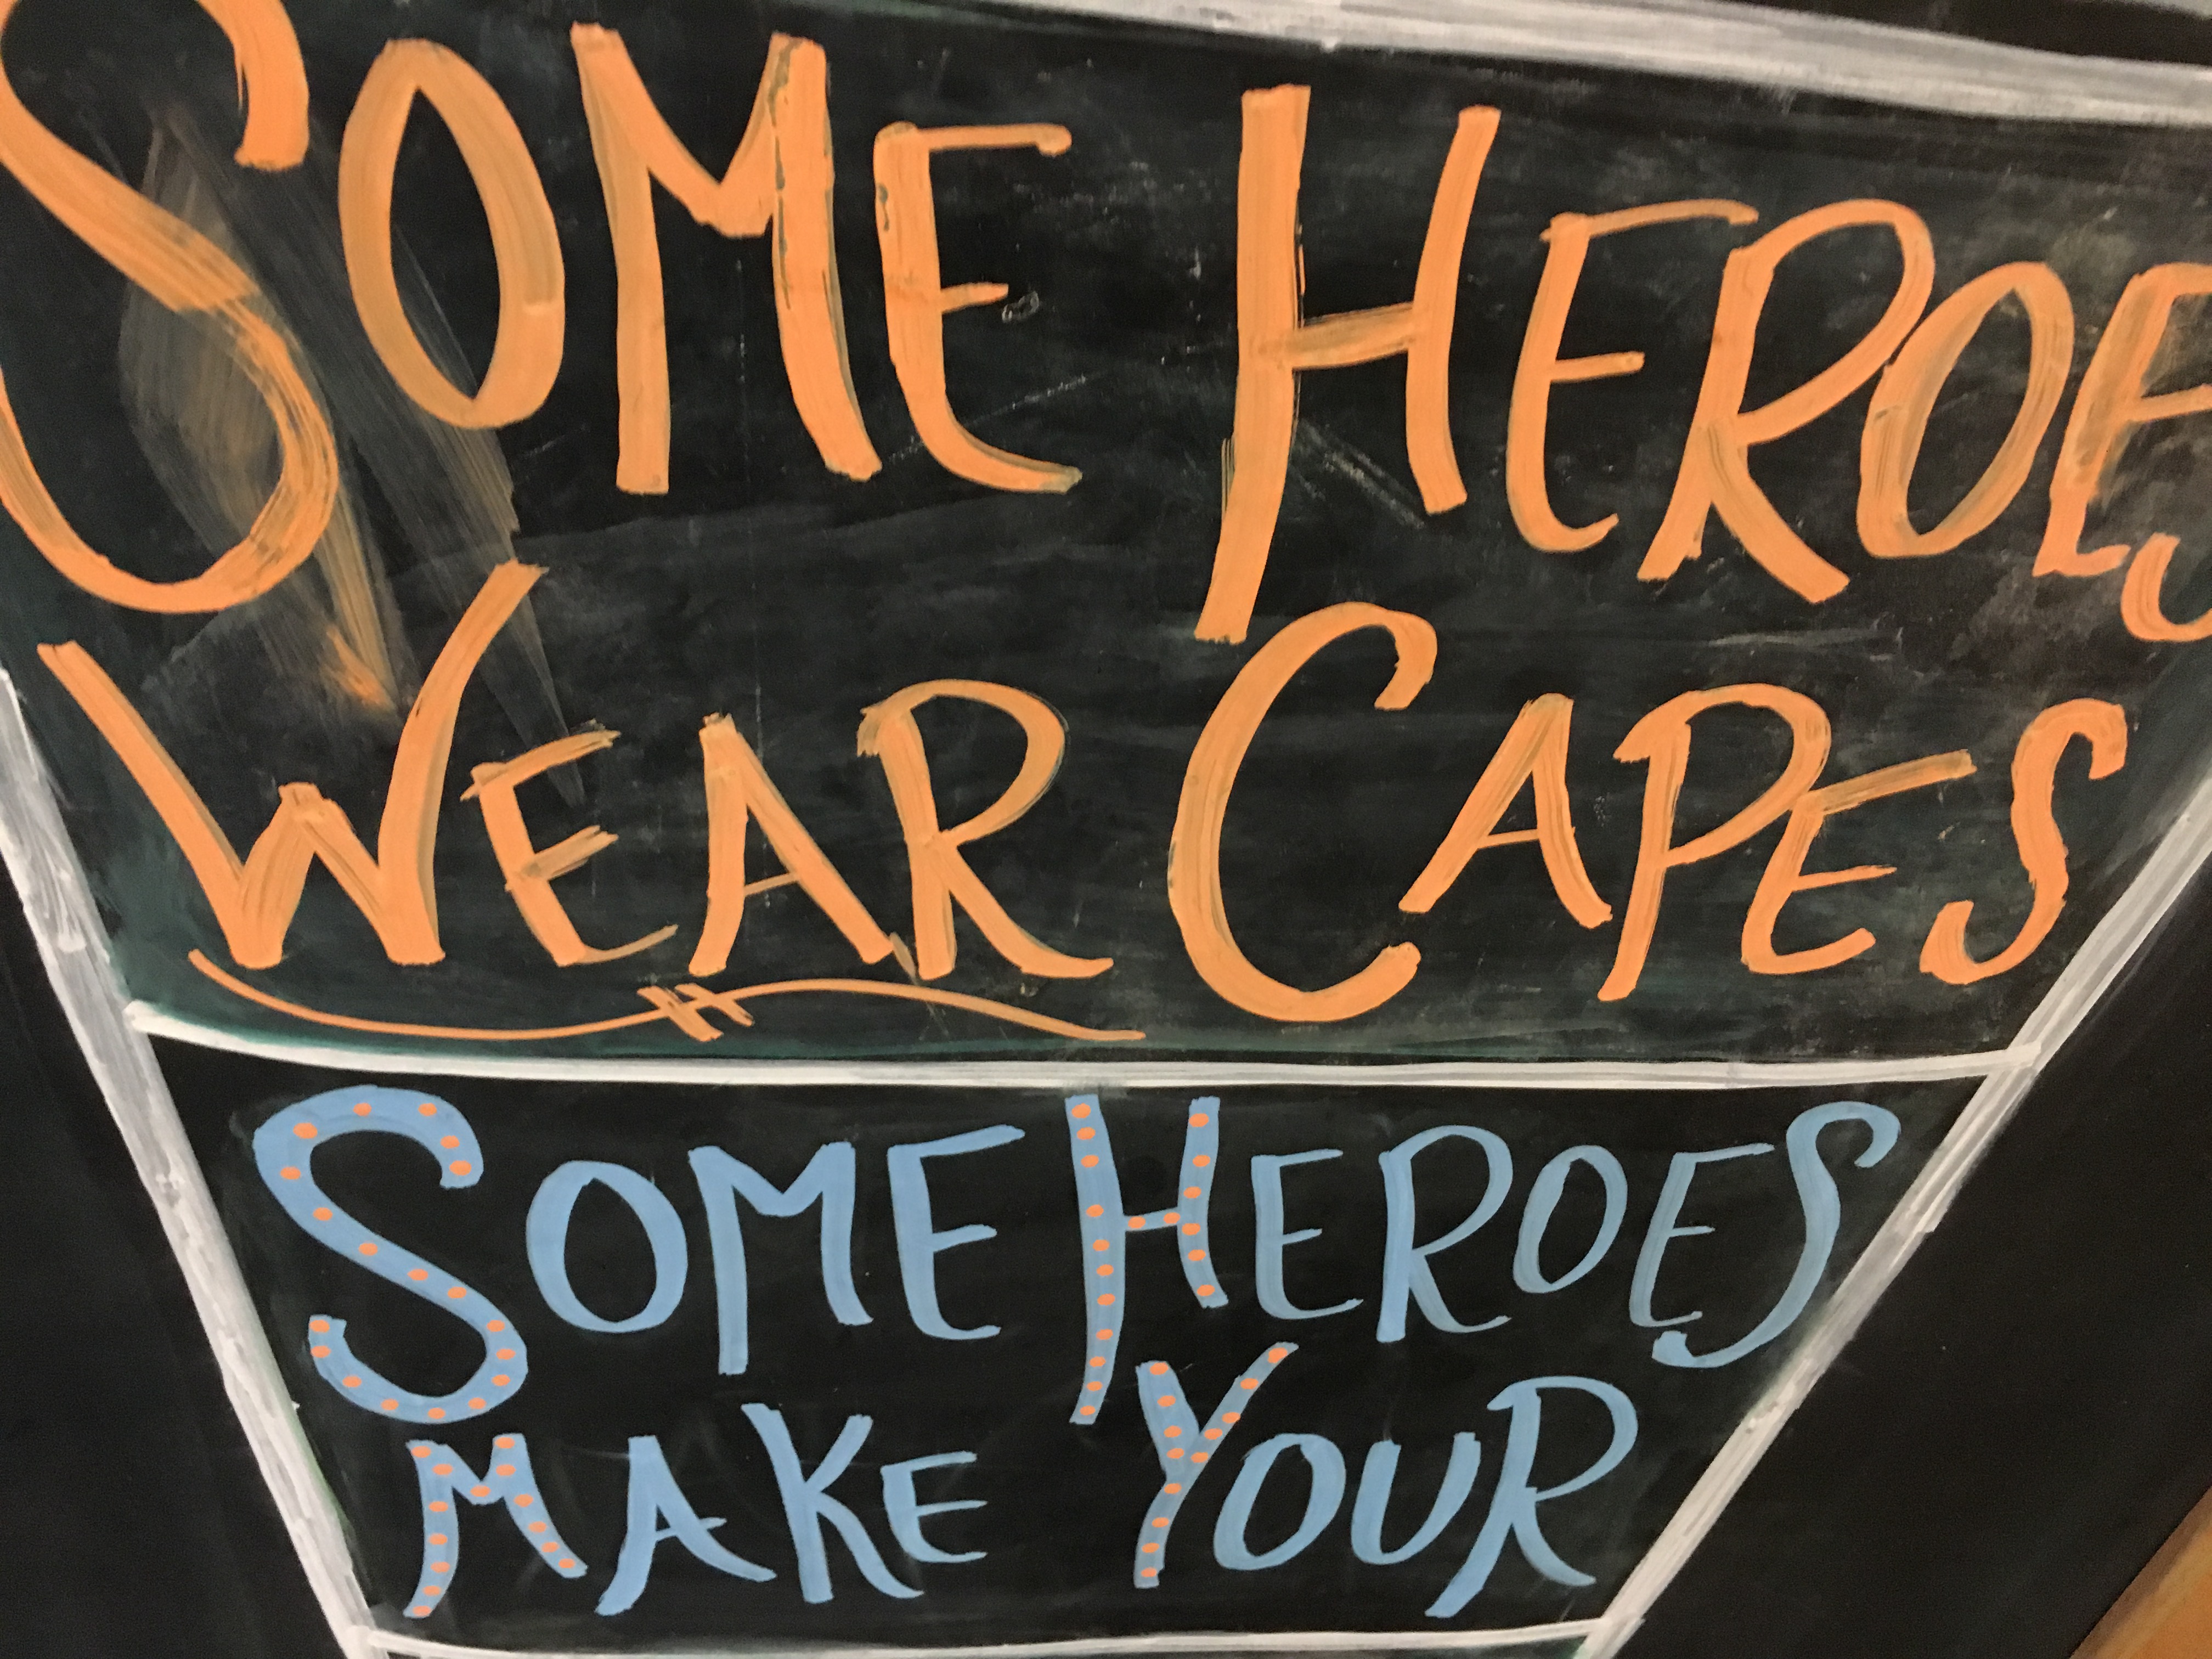 SOME HEROES
WEAR CAPES
SOME HEROES
MAKE YOUR